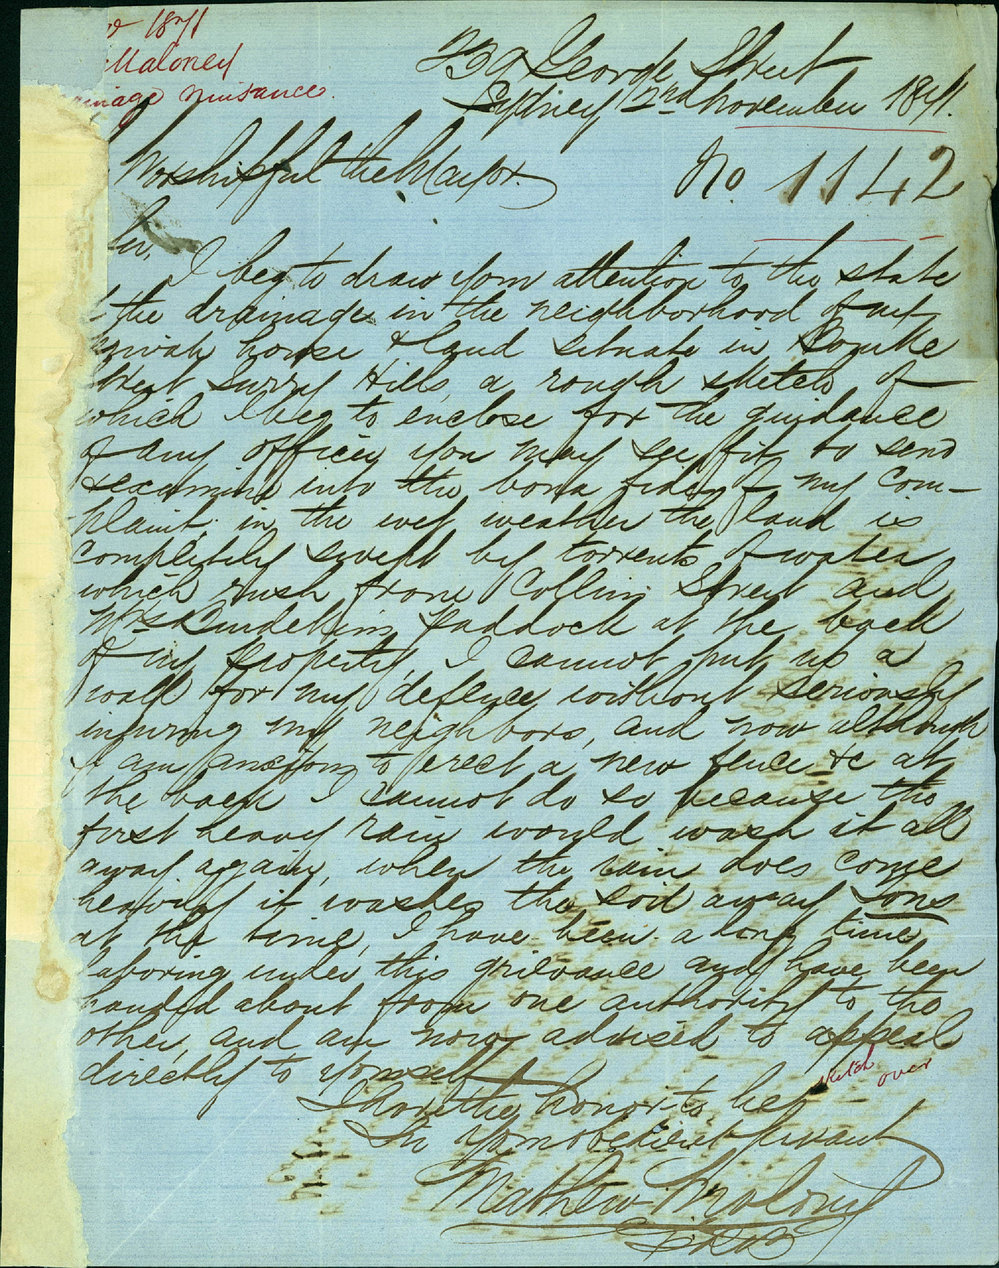 1871
Maloney
nuisance.
George Street
Sydney 2nd November 1871.
Worshipful the Mayor.
No. 1142
Sir,
I beg to draw your attention to the state
the drainage in the neighborhood of my
private house & land situate in Bourke
Street Surry Hills, a rough sketch of
which I beg to enclose for the guidance
of any officer you may see fit to send
examine into the bona fides of my com-
plaint; in the wet weather the land is
completely swept by torrents of water
which rush from Collins Street and
Mrs Burdekins Paddock at the back
of my property, I cannot put up a
wall for my defence without seriously
injuring my neighbors, and now although
I am anxious to erect a new fence &c at
the back I cannot do so because the
first heavy rain would wash it all
away again, when the rain does come
heavily it washes the soil away tons
at the time, I have been a long time
laboring under this grievance and have been
handed about from one authority to the
other, and am now advised to appeal
directly to yourself
sketch over
I have the honor to be
Sir your obedient servant
Mathew Molony